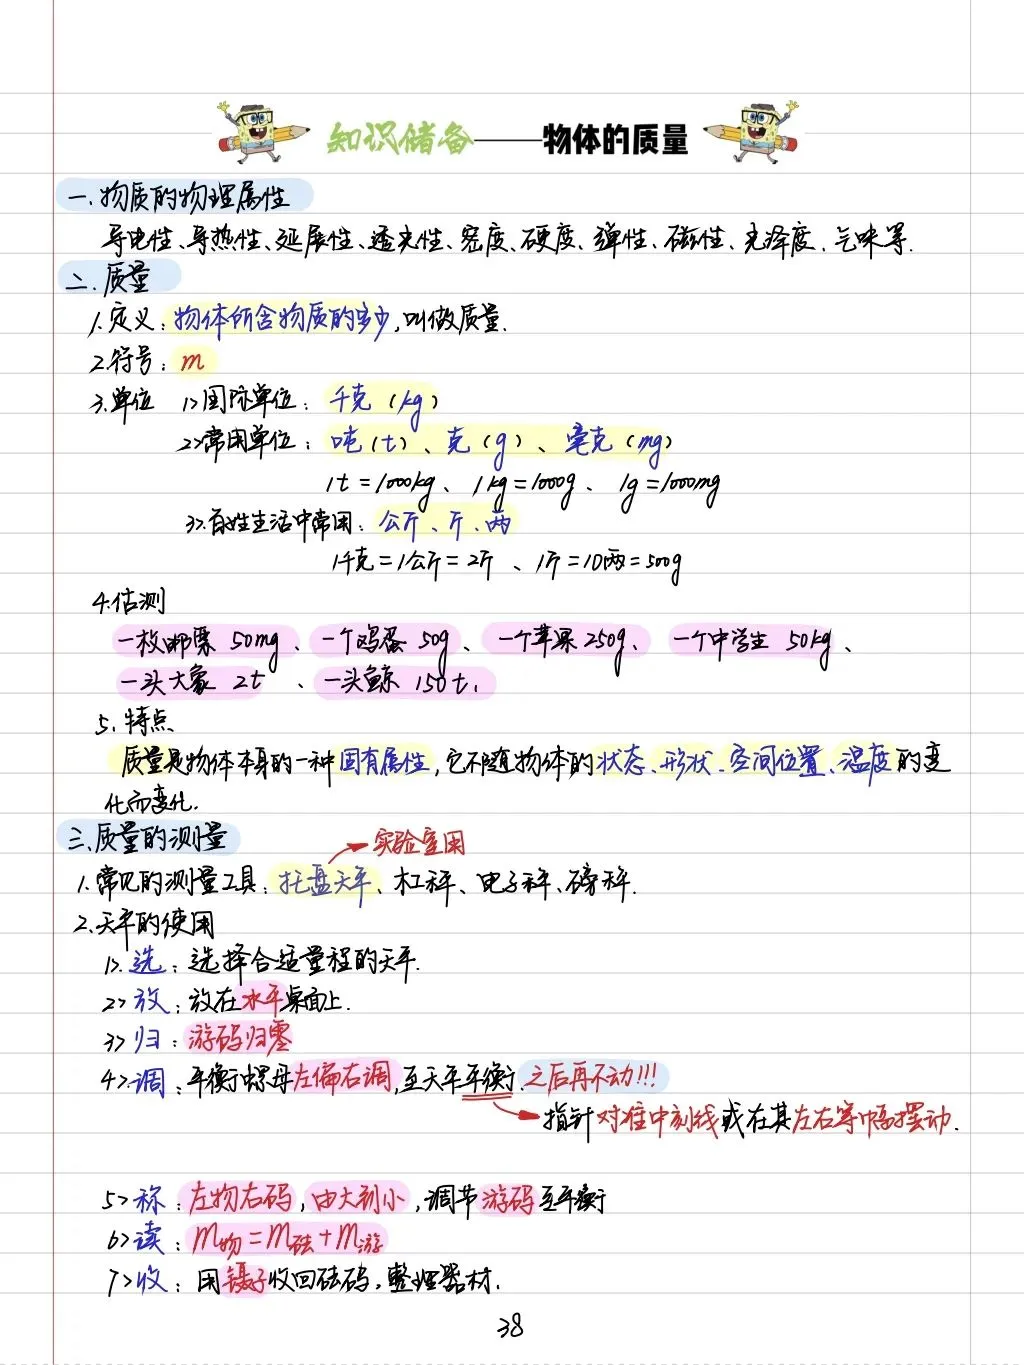 知识储备——物体的质量
一.物质的物理属性
导电性、导热性、延展性、透光性、密度、硬度、弹性、磁性、光泽度、气味等.
二.质量
1.定义:物体所含物质的多少,叫做质量.
2.符号:m
3.单位 1>国际单位:千克(kg)
2>常用单位:吨(t)、克(g)、毫克(mg)
1t=1000kg、1kg=1000g、1g=1000mg
3>.百姓生活中常用:公斤、斤、两
1千克=1公斤=2斤、1斤=10两=500g
4.估测
一枚邮票50mg、一个鸡蛋50g、一个苹果250g、一个中学生50kg、
一头大象2t、一头鲸150t.
5.特点
质量是物体本身的一种固有属性,它不随物体的状态、形状、空间位置、温度的变
化而变化.
三.质量的测量
实验室用
1.常见的测量工具:托盘天平、杠秤、电子秤、磅秤.
2.天平的使用
1>.选:选择合适量程的天平.
2>放:放在水平桌面上.
3>归:游码归零
4>.调:平衡螺母左偏右调,至天平平衡.之后再不动!!!
指针对准中刻线或在其左右等幅摆动.
5>称:左物右码,由大到小,调节游码至平衡
6>读:m物=m砝+m游
7>收:用镊子收回砝码,整理器材.
38